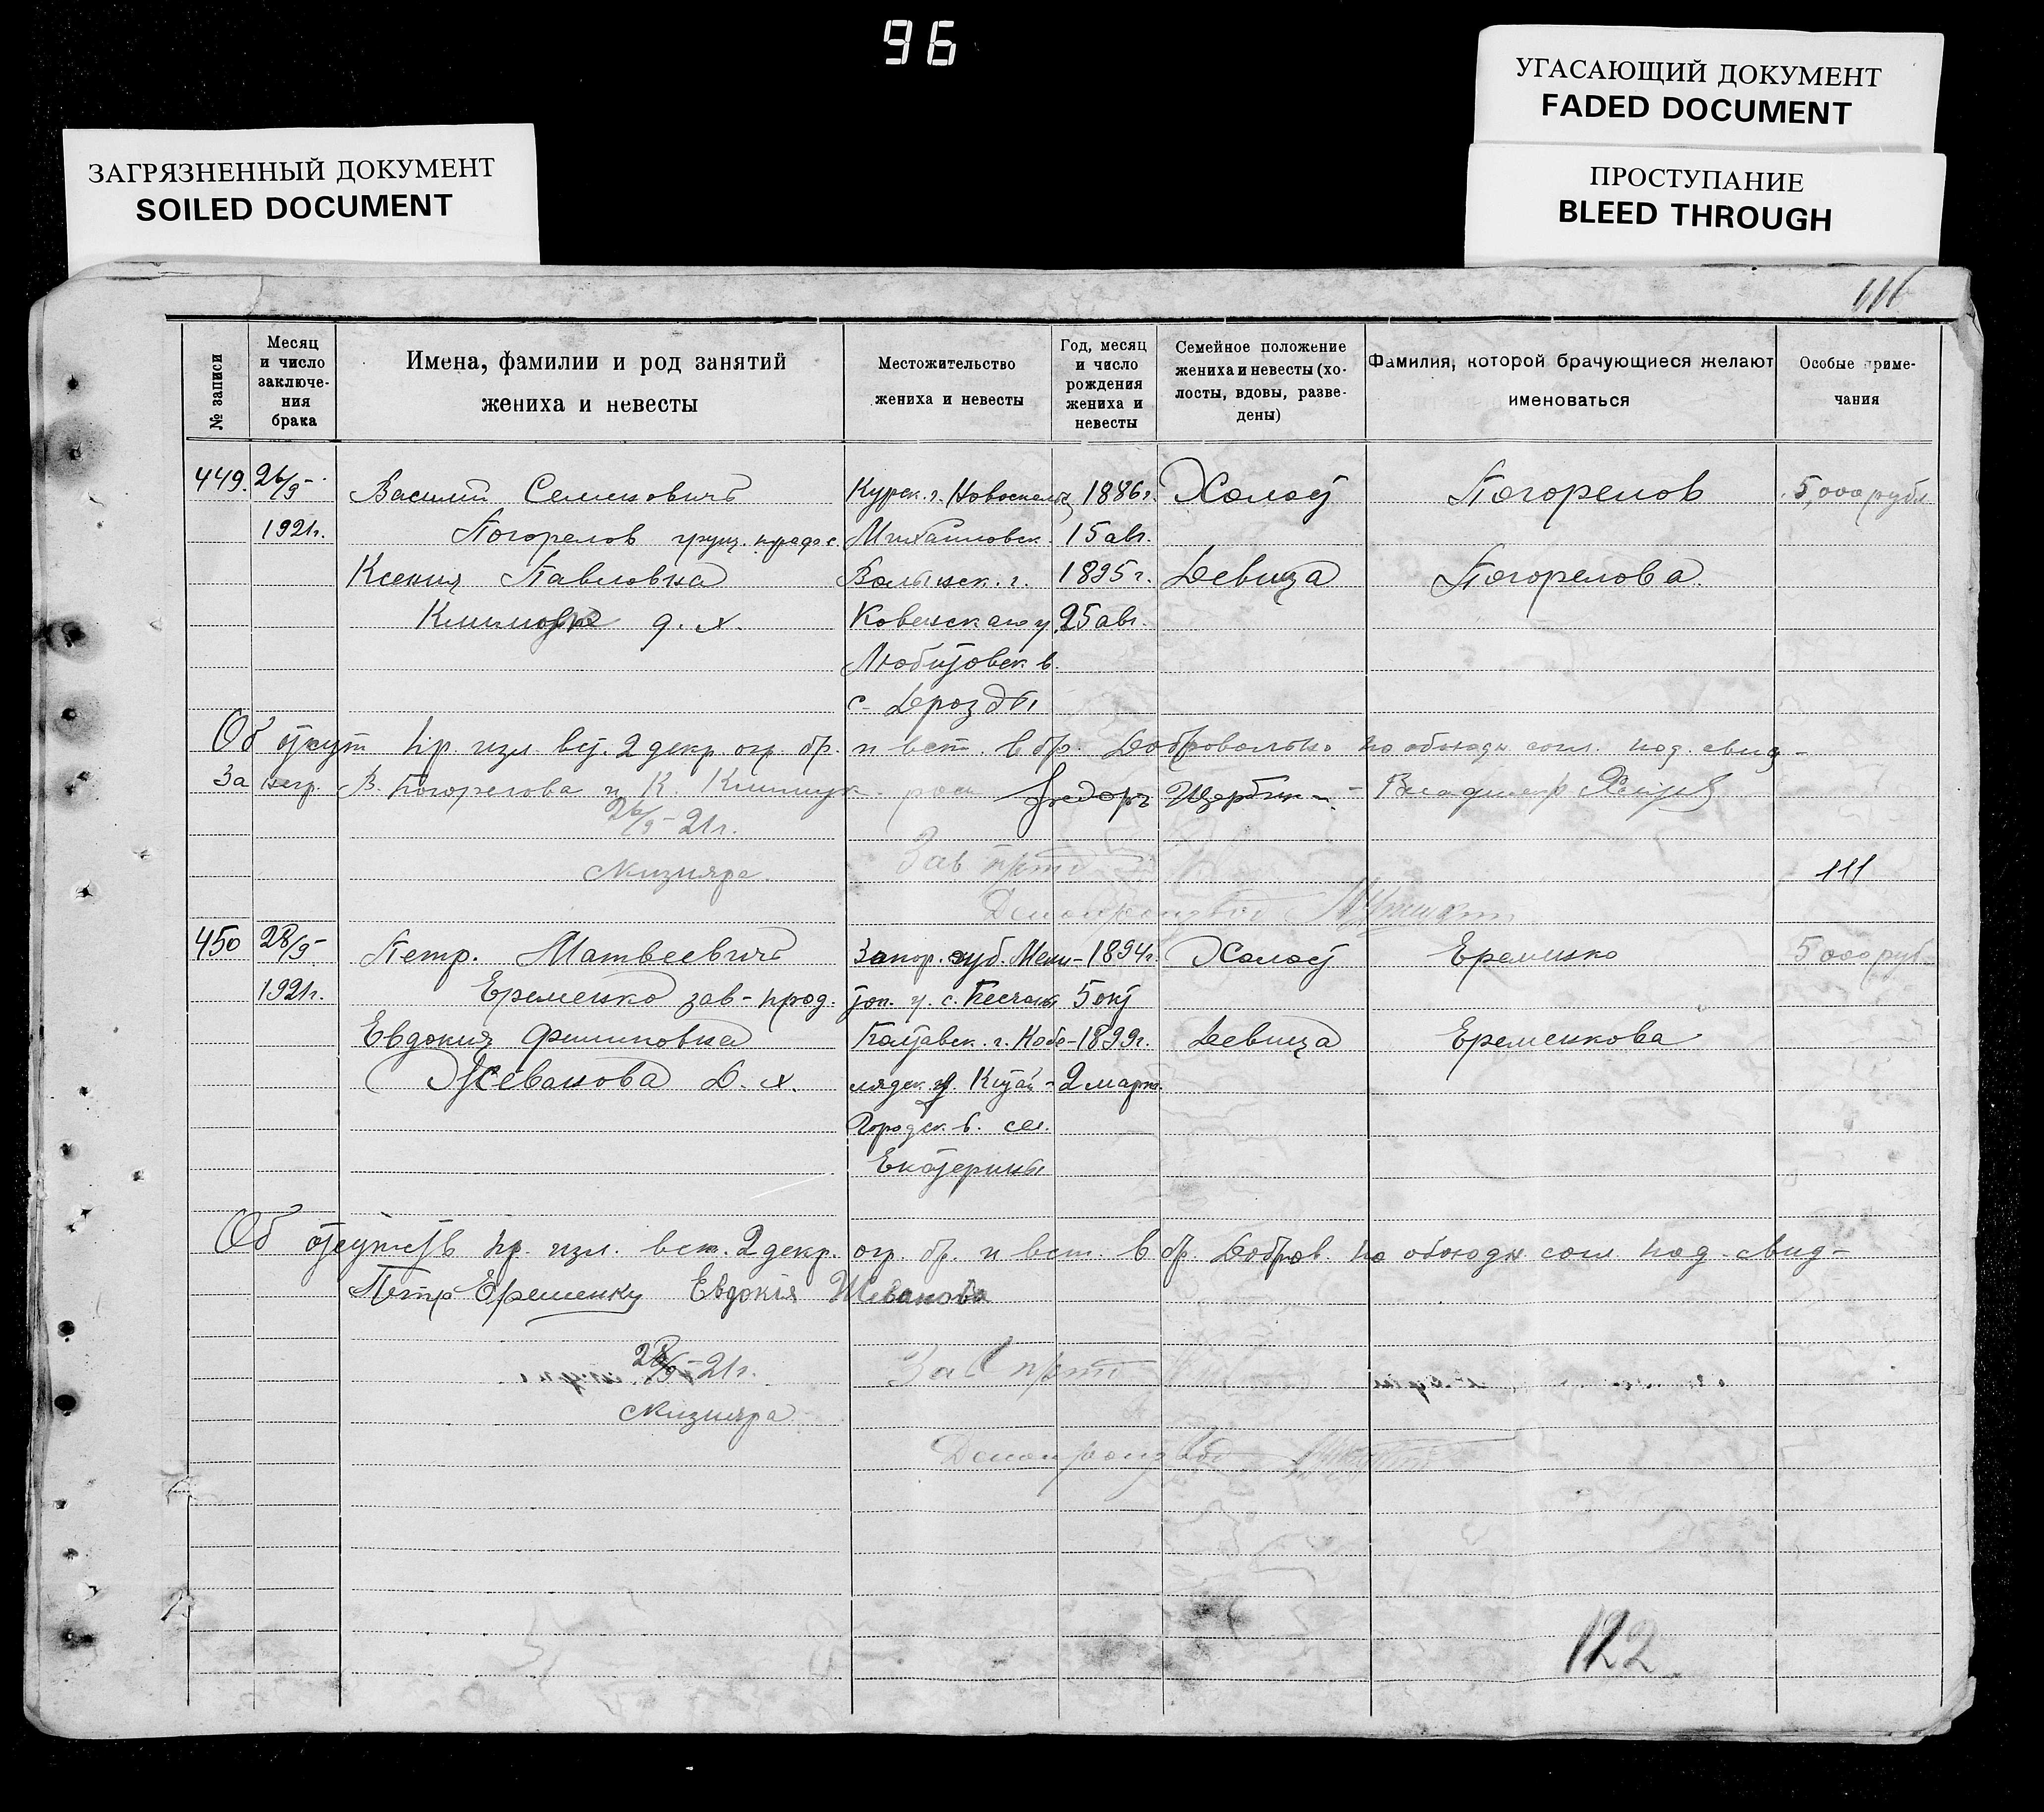 96
УГАСАЮЩИЙ ДОКУМЕНТ
FADED DOCUMENT
ЗАГРЯЗНЕННЫЙ ДОКУМЕНТ
SOILED DOCUMENT
ПРОСТУПАНИЕ
BLEED THROUGH
№ записи
Месяц и число заключе-ния брака
Имена, фамилии и род занятий жениха и невесты
Местожительство жениха и невесты
Год, месяц и число рождения жениха и невесты
Семейное положение жениха и невесты (хо-лосты, вдовы, разве-дены)
Фамилия, которой брачующиеся желают именоваться
Особые приме-чания
449. 26/9- Василий Семенович Курск. г. 1886г. Холост Погорелов 5,000 рубл
1921г. Погорелов Михайловск. 15 авг.
Ксения Павловна Волынск. г. 1895г. Девица Погорелова
д. х. Ковельскаго у. 25 авг.
Любитовск. в.
с. Дрозды
Об отсут пр. изл. вст. 2 декр. огр. бр. и вст. в бр. Добровольно по обоюдн согл. под. свид-
За негр. В. Погорелова и К. Климчук Федоръ Щербин Владимир
26/9-21г.
Зав
111
450 28/9- Петр. Матвеевич Запор. губ. Мели- 1894г. Холост Еременко 5000 руб
1921г. Еременко зав-прод. топ. у. с. 5 окт
Евдокия Филиповна Полтавск. г. Кобе- 1899г. Девица Еременкова
Жеванова Д. х. лядск. у. Китай- 2 март.
Городск. в. сел.
Екатерины
Об отсутств пр. изл. вст. 2 декр. огр. бр. и вст. в бр. Добров. по обоюдн согл под свид-
Петр Еременку Евдокія Жеванова
28/9-21г. Зав
122